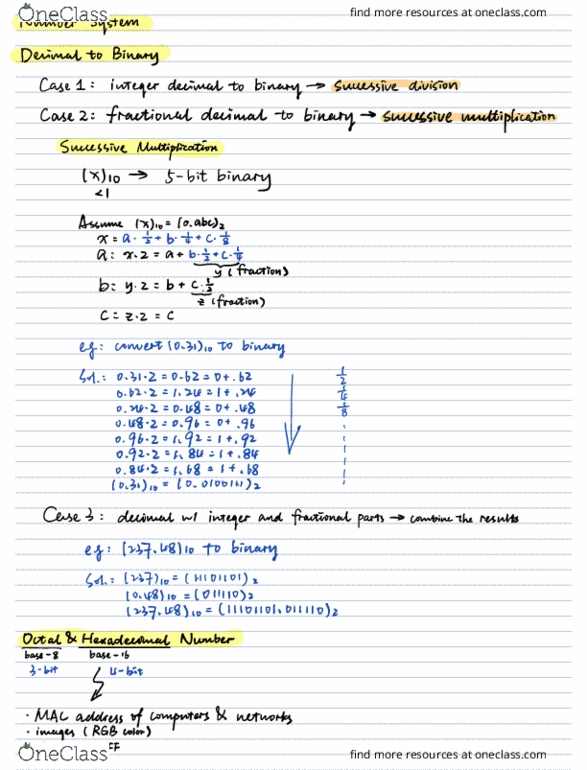 OneClass find more resources at oneclass.com
Number System
Decimal to Binary
Case 1: integer decimal to binary → successive division
Case 2: fractional decimal to binary → successive multiplication
Successive Multiplication
(x)10 → 5-bit binary
<1
Assume (x)10 = (0.abc)2
x = a · 1/2 + b · 1/4 + c · 1/8
a: x·2 = a + b·1/2 + c·1/4
y (fraction)
b: y·2 = b + c·1/2
z (fraction)
c = z·2 = c
eg: convert (0.31)10 to binary
Sol.: 0.31·2 = 0.62 = 0+.62 1/2
0.62·2 = 1.24 = 1+.24 1/4
0.24·2 = 0.48 = 0+.48 1/8
0.48·2 = 0.96 = 0+.96
0.96·2 = 1.92 = 1+.92
0.92·2 = 1.84 = 1+.84
0.84·2 = 1.68 = 1+.68
(0.31)10 = (0.0100111)2
Case 3: decimal w/ integer and fractional parts → combine the results
eg: (237.48)10 to binary
Sol.: (237)10 = (11101101)2
(0.48)10 = (011110)2
(237.48)10 = (11101101.011110)2
Octal & Hexadecimal Number
base-8 base-16
3-bit 4-bit
· MAC address of computers & networks
· images (RGB color)
FF
OneClass find more resources at oneclass.com